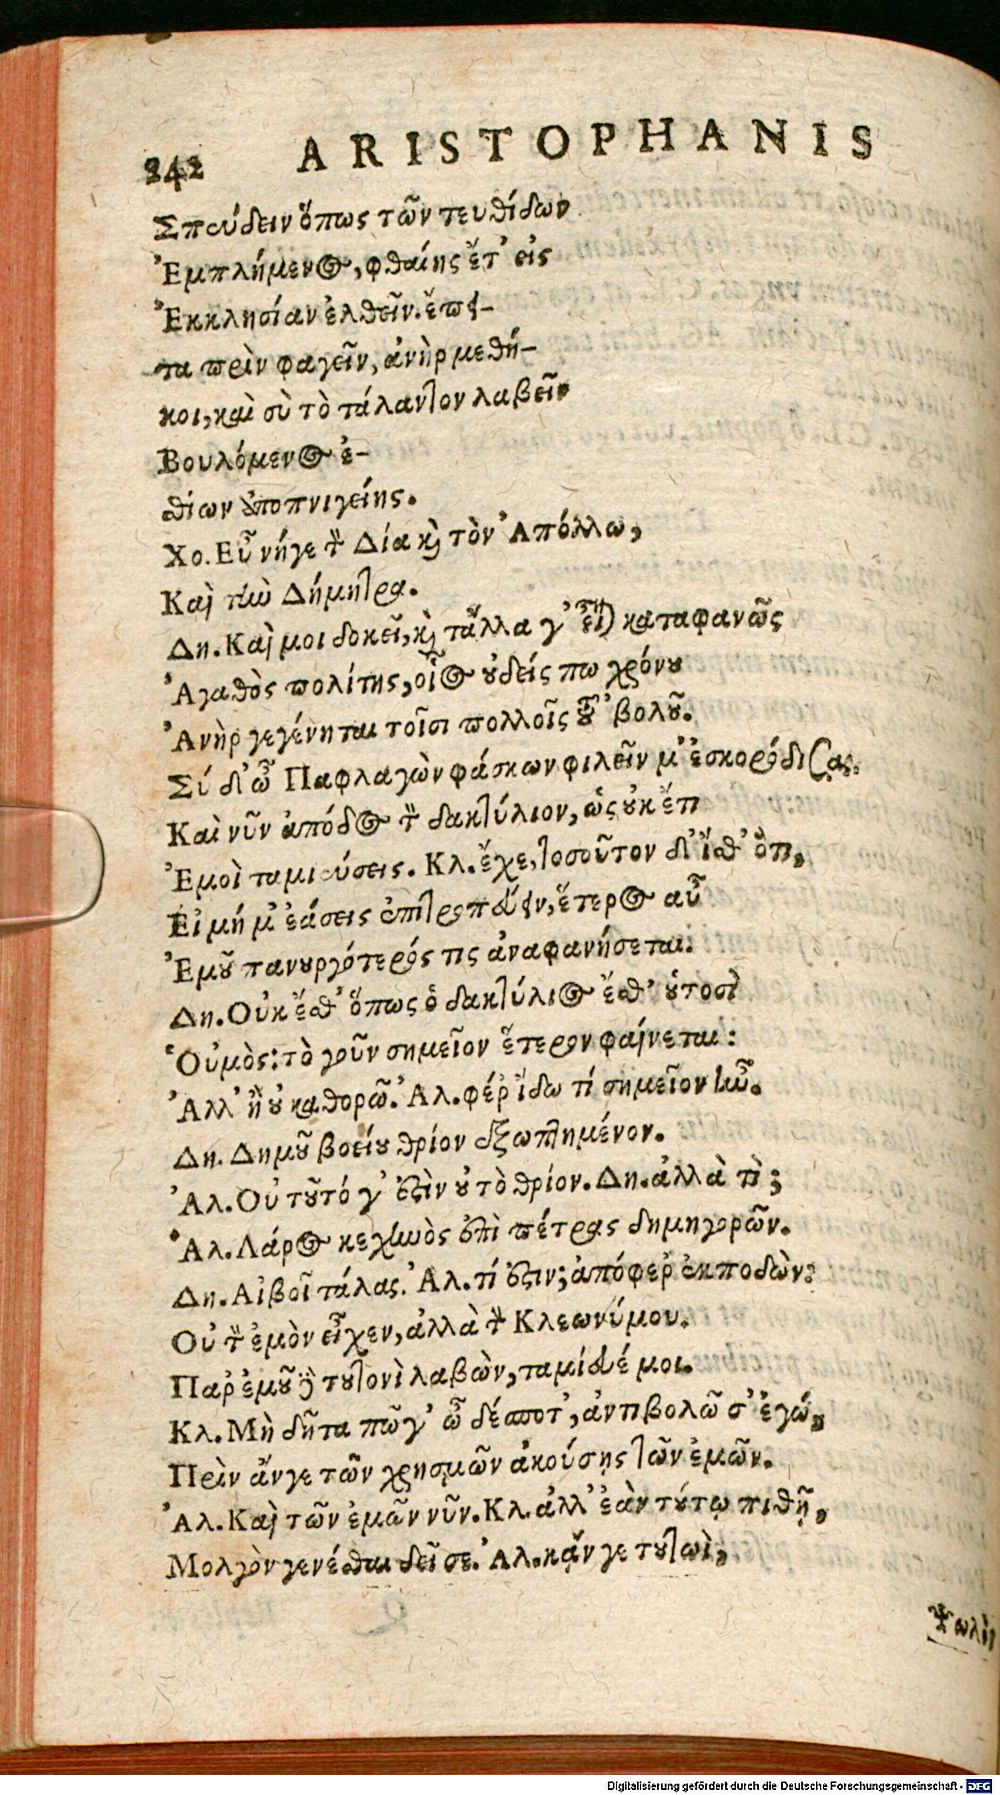 242 ARISTOPHANIS
Σπεύδειν ὅπως τῶν τευθίδων
Ἐμπλήμενος, φθαίης ἔτ' εἰς
Ἐκκλησίαν ἐλθεῖν. ἔπει-
τα πρὶν φαγεῖν, ἀνὴρ μεθή-
κοι, καὶ σὺ τὸ τάλαντον λαβεῖν
Βουλόμενος ἐ-
σθίων ἀποπνιγείης.
Χο. Εὖ νήγε τὸν Δία καὶ τὸν Ἀπόλλω,
Καὶ τὴν Δήμητρα.
Δη. Καὶ μοι δοκεῖ, καὶ τἄλλα γ' εἶναι καταφανῶς
Ἀγαθὸς πολίτης, οἷος οὐδείς πω χρόνου
Ἀνὴρ γεγένηται τοῖσι πολλοῖς τοῦ 'βολοῦ.
Σύ δ' ὦ Παφλαγὼν φάσκων φιλεῖν μ' ἐσκορόδισας.
Καὶ νῦν ἀπόδος τὸν δακτύλιον, ὡς οὐκ ἔτι
Ἐμοὶ ταμιεύσεις. Κλ. ἔχε, τοσοῦτον δ' ἴσθ' ὅτι,
Εἰ μή μ' ἐάσεις ἐπιτροπεύειν, ἕτερος αὖ
Ἐμοῦ πανουργότερός τις ἀναφανήσεται.
Δη. Οὐκ ἔσθ' ὅπως ὁ δακτύλιος ἔσθ' οὑτοσὶ
Οὑμὸς: τὸ γοῦν σημεῖον ἕτερον φαίνεται:
Ἀλλ' ἢ οὐ καθορῶ. Ἀλ. φέρ' ἴδω τί σημεῖον ἦν.
Δη. Δημοῦ βοείου θρίον ἐξωπτημένον.
Ἀλ. Οὐ τοῦτό γ' ἐστὶν οὐ τὸ θρίον. Δη. ἀλλὰ τὶ;
Ἀλ. Λάρος κεχηνὸς ἐπὶ πέτρας δημηγορῶν.
Δη. Αἰβοῖ τάλας. Ἀλ. τί ἐστιν; ἀπόφερ' ἐκποδὼν:
Οὐ τὸν ἐμὸν εἶχεν, ἀλλὰ τὸν Κλεωνύμου.
Παρ' ἐμοῦ δὲ τουτονὶ λαβὼν, ταμίευέ μοι.
Κλ. Μὴ δῆτα πῶ γ' ὦ δέσποτ', ἀντιβολῶ σ' ἐγώ,
Πρὶν ἄνγε τῶν χρησμῶν ἀκούσῃς τῶν ἐμῶν.
Ἀλ. Καὶ τῶν ἐμῶν νῦν. Κλ. ἀλλ' ἐὰν τούτῳ πιθῇ,
Μολγὸν γενέσθαι δεῖ σε. Ἀλ. κἄν γε τουτωὶ,
Ψωλὸν
Digitalisierung gefördert durch die Deutsche Forschungsgemeinschaft - DFG